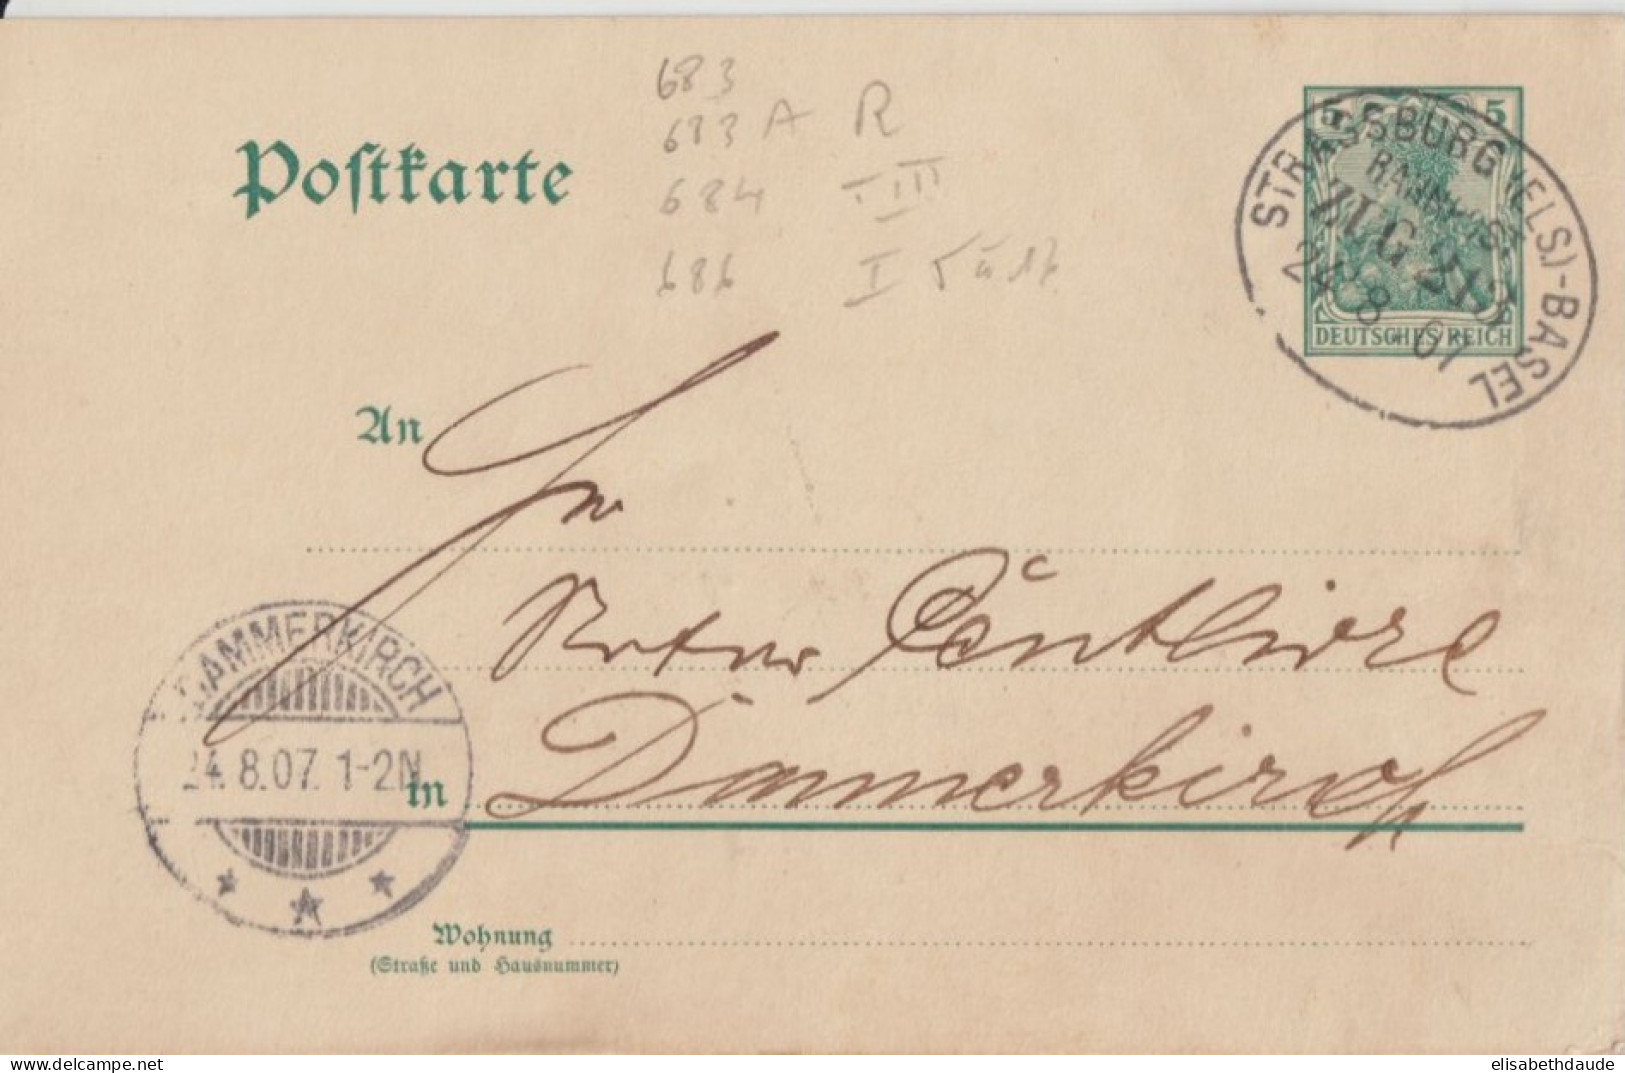 683
683 A R
684 III
686 I
Postkarte
5 5
DEUTSCHES REICH
STRASSBURG (ELS.)-BASEL
BAHNPOST
ZUG 213
24 8 07
An
Notar Centlivre
DAMMERKIRCH
24.8.07. 1-2N.
in Dammerkirch
Wohnung
(Straße und Hausnummer)
delcampe.net
elisabethdaude